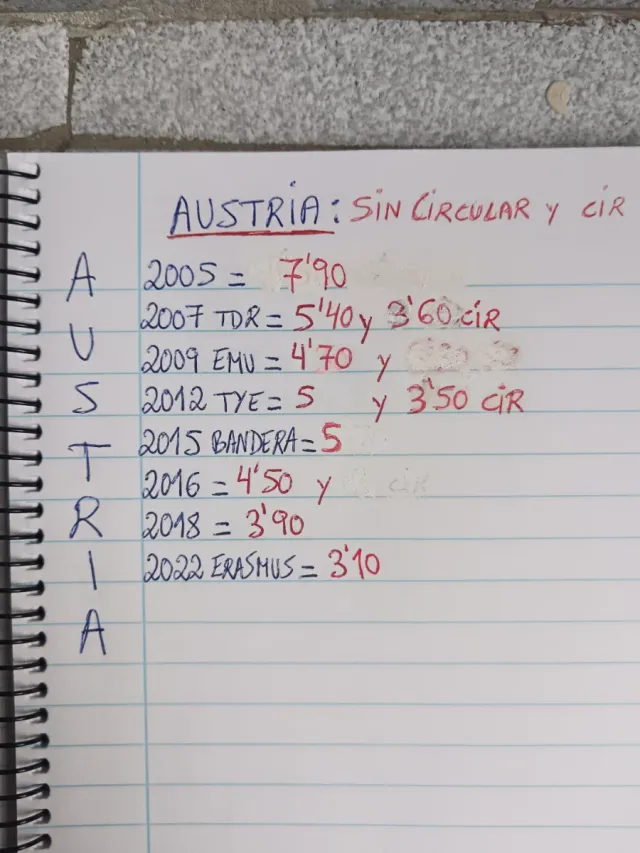 AUSTRIA: SIN CIRCULAR Y CIR
A
U
S
T
R
I
A
2005 = 7'90
2007 TDR = 5'40 y 3'60 CIR
2009 EMU = 4'70 y
2012 TYE = 5 y 3'50 CIR
2015 BANDERA = 5
2016 = 4'50 y
2018 = 3'90
2022 ERASMUS = 3'10